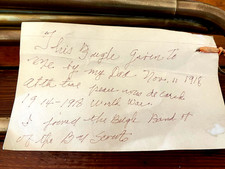 This Bugle Given To
Me by my Dad. Nov. 11 1918
at the time peace was declared
1914-1918 World War.
I joined the Bugle Band
of the Boy Scouts